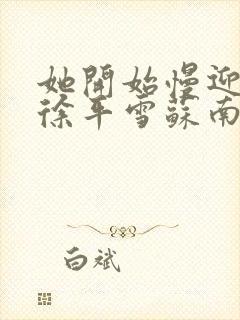 她開始慢迎
徐年雪蘇南
白斌